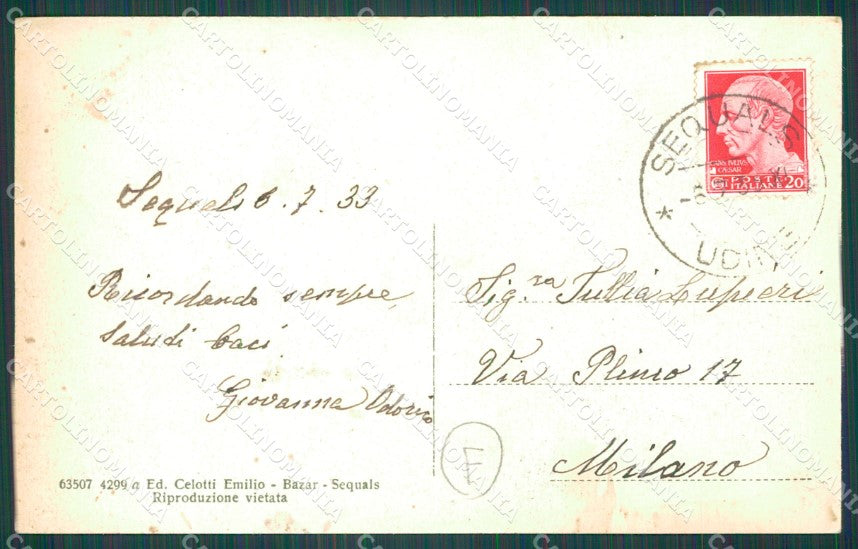 Sequals 6.7.33
Ricordando sempre,
saludi baci
Giovanna Odorico
Sig.ra Tullia Lupieri
Via Plinio 17
Milano
63507 4299 a Ed. Celotti Emilio - Bazar - Sequals
Riproduzione vietata
CAIVS IVLIVS
CAESAR
POSTE
ITALIANE 20
SEQUALS
UDINE
CARTOLINOMANIA